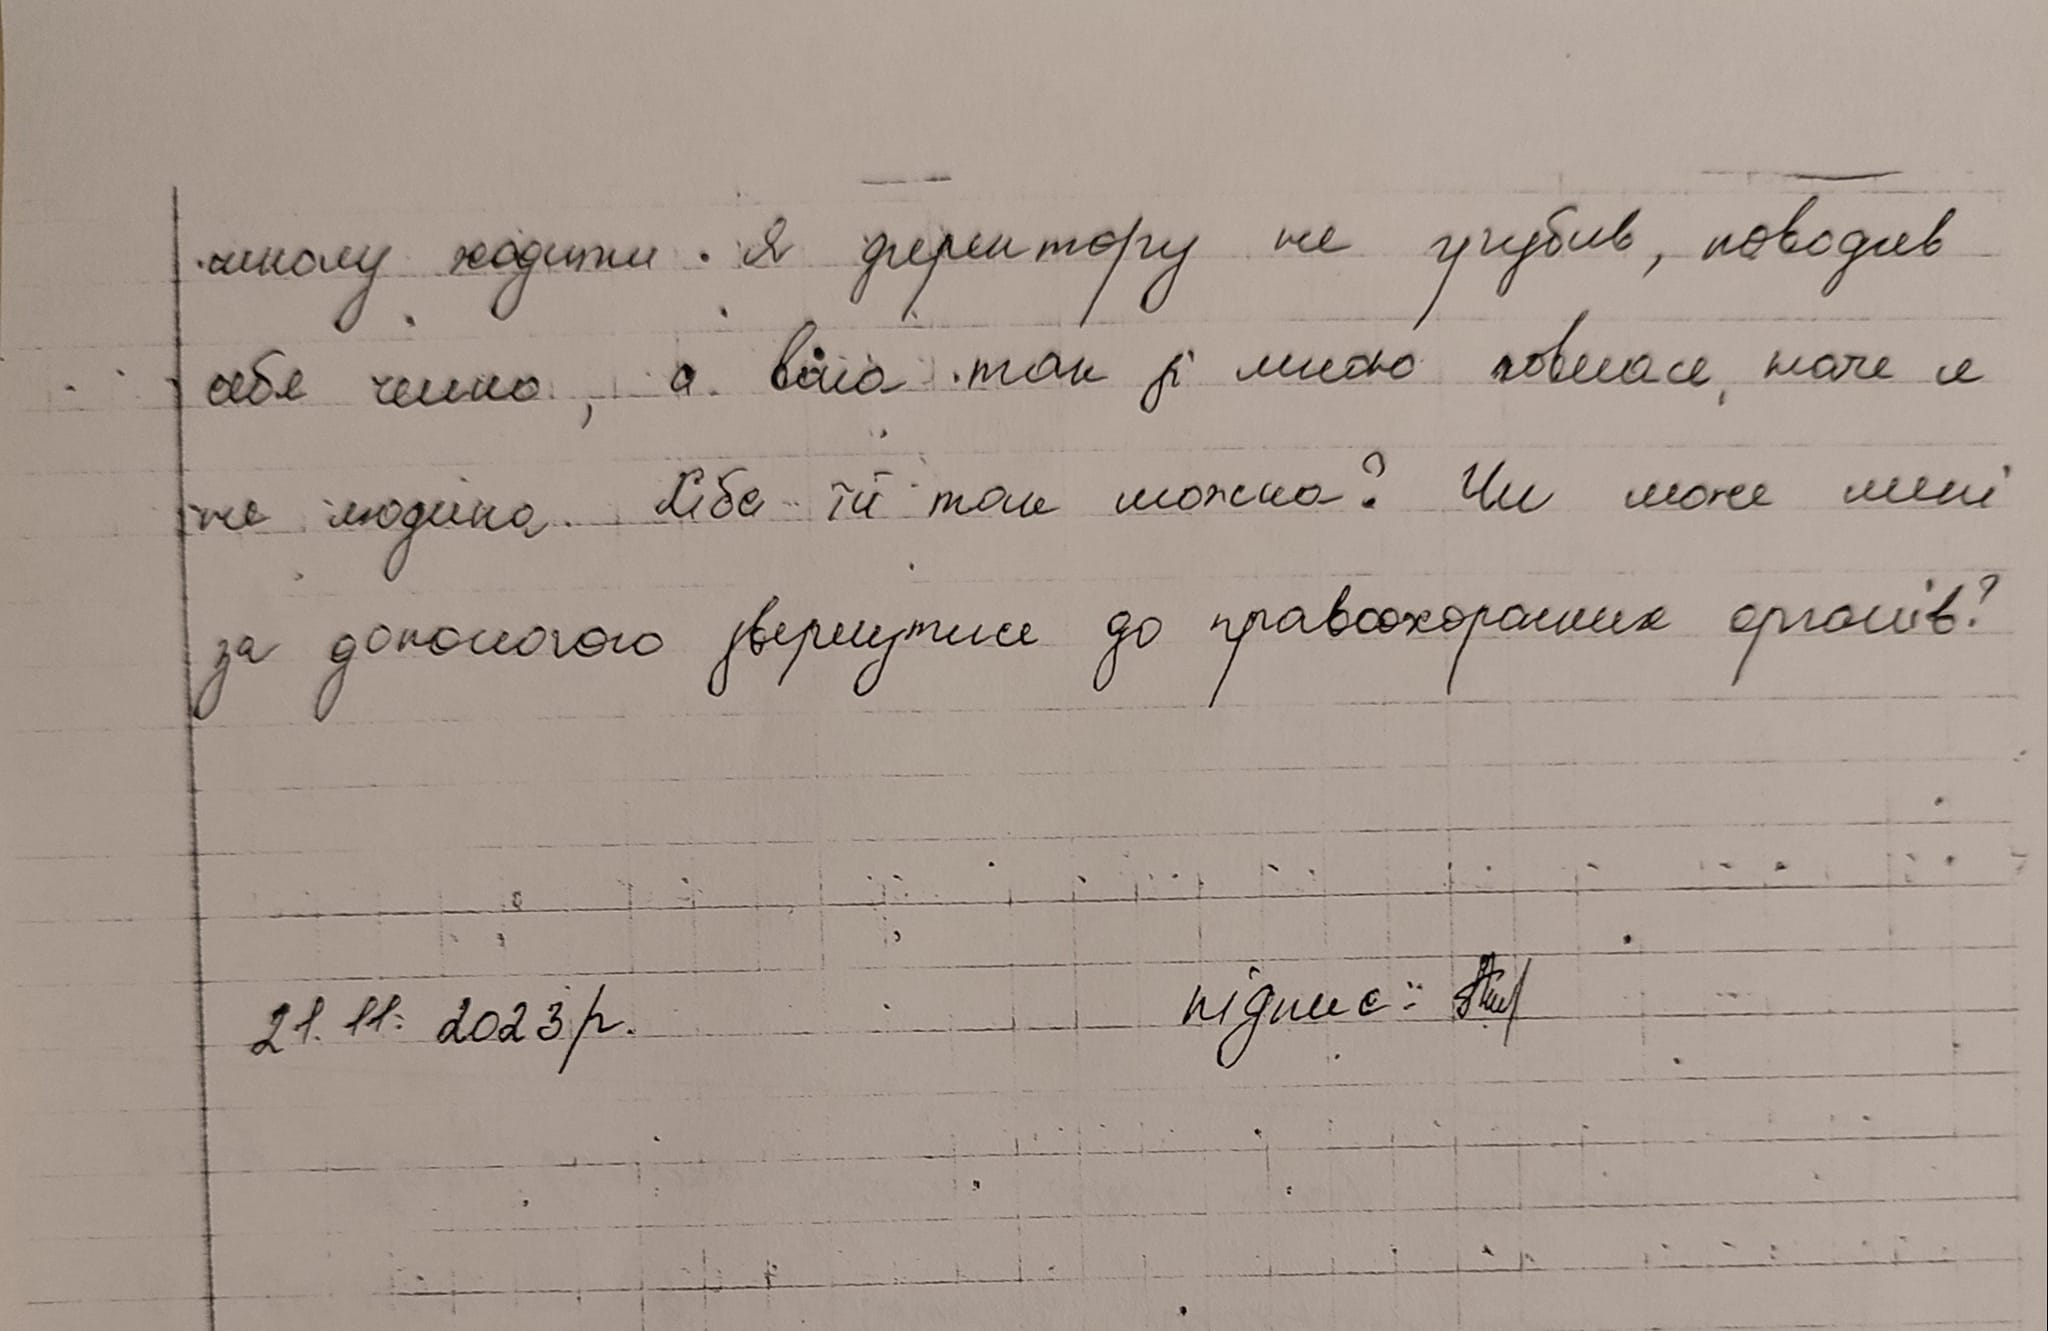 школу ходити. Я директору не грубив, поводив
себе чемно, а вона так зі мною повелася, наче я
не людина. Хіба їй так можна? Чи може мені
за допомогою звернутися до правоохоронних органів?
21.11. 2023 р.
підпис: